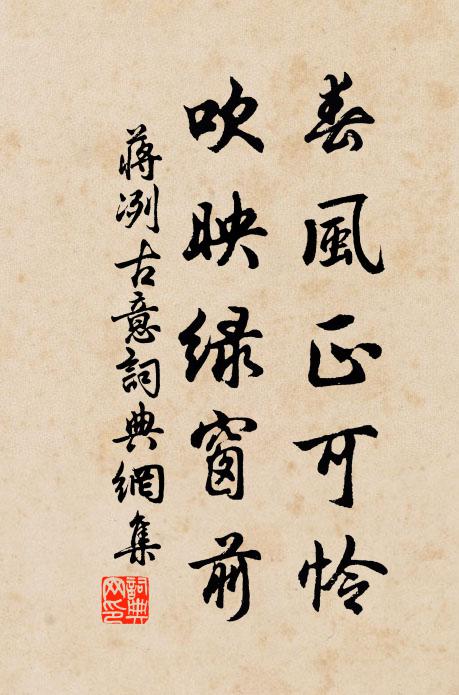 春風正可怜
吹映緑窗前
蔣冽古意詞典網集
詞典网印